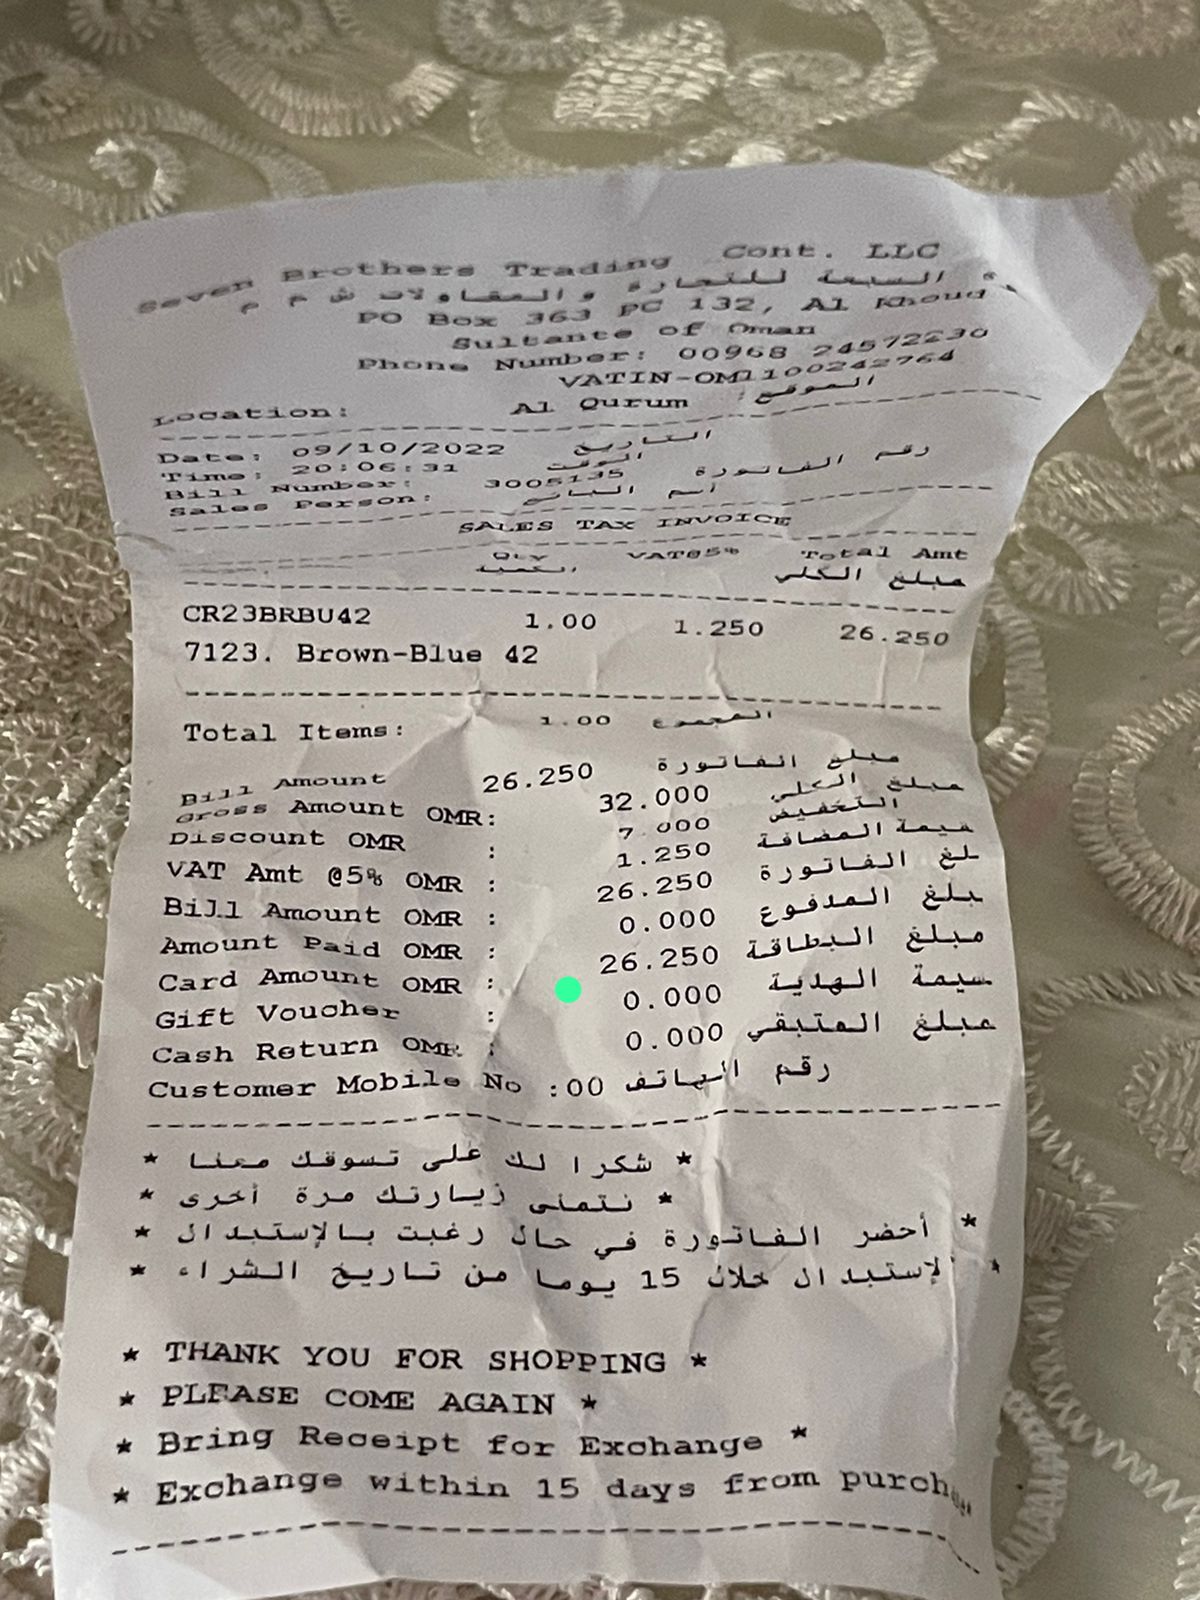 Seven Brothers Trading Cont. LLC
السبعة للتجارة والمقاولات ش م م
PO Box 363 PC 132, Al Khoud
Sultante of Oman
Phone Number: 00968 24572230
VATIN-OM1100242764
Location: Al Qurum الموقع:
Date: 09/10/2022 التاريخ
Time: 20:06:31 الوقت
Bill Number: 3005135 رقم الفاتورة
Sales Person: اسم البائع
SALES TAX INVOICE
Qty VAT@5% Total Amt
الكمية مبلغ الكلي
CR23BRBU42 1.00 1.250 26.250
7123. Brown-Blue 42
Total Items: 1.00 المجموع
Bill Amount 26.250 مبلغ الفاتورة
Gross Amount OMR: 32.000 مبلغ الكلي
Discount OMR : 7.000 التخفيض
VAT Amt @5% OMR : 1.250 قيمة المضافة
Bill Amount OMR : 26.250 لغ الفاتورة
Amount Paid OMR : 0.000 بلغ المدفوع
Card Amount OMR : 26.250 مبلغ البطاقة
Gift Voucher : 0.000 سيمة الهدية
Cash Return OMR : 0.000 مبلغ المتبقي
Customer Mobile No :00 رقم الهاتف
* شكرا لك على تسوقك معنا *
* نتمنى زيارتك مرة أخرى *
* أحضر الفاتورة في حال رغبت بالإستبدال *
* لإستبدال خلال 15 يوما من تاريخ الشراء *
* THANK YOU FOR SHOPPING *
* PLEASE COME AGAIN *
* Bring Receipt for Exchange *
* Exchange within 15 days from purch